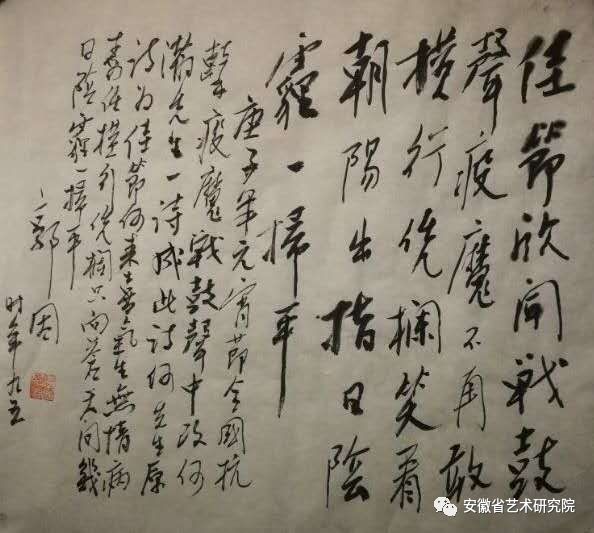 佳節欣聞戰鼓
聲疫魔不再敢
橫行凭攔笑看
朝陽出指日陰
霾一掃平
庚子年元宵節全國抗
擊疫魔戰鼓聲中改何
滿先生一詩成此詩何先生原
詩為佳節何來喜氣生無情病
毒任橫行凭攔只向蒼天問幾
日陰霾一掃平
郭因
时年九五
安徽省艺术研究院